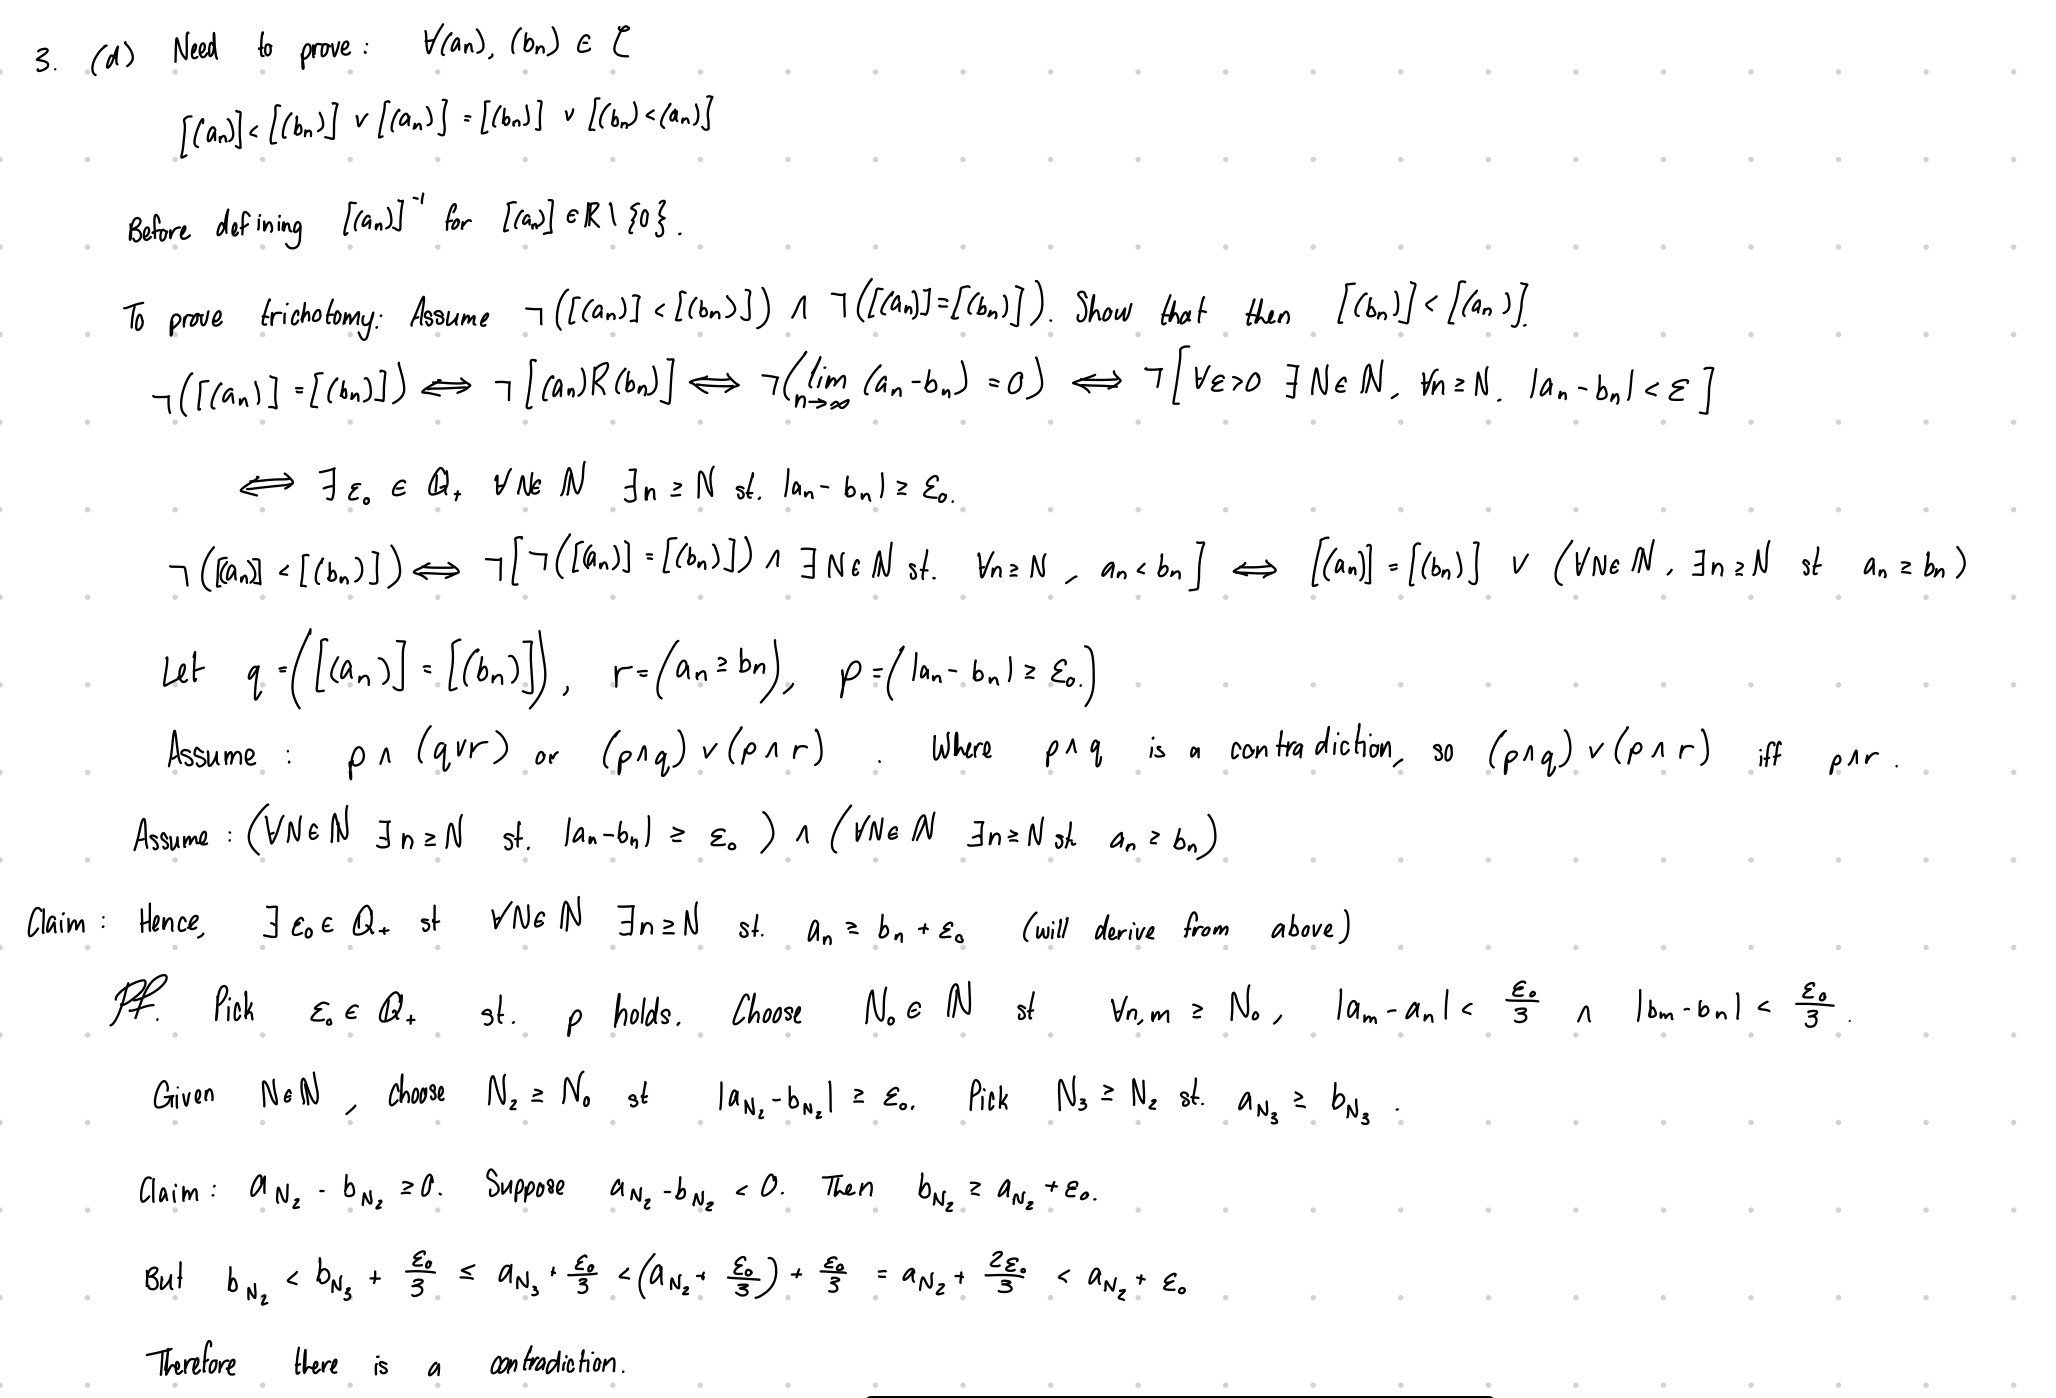 3. (d) Need to prove: ∀(aₙ), (bₙ) ∈ ζ
[(aₙ)] < [(bₙ)] ∨ [(aₙ)] = [(bₙ)] ∨ [(bₙ) < (aₙ)]
Before defining [(aₙ)]⁻¹ for [(aₙ)] ∈ ℝ \ {0}.
To prove trichotomy: Assume ¬([(aₙ)] < [(bₙ)]) ∧ ¬([(aₙ)] = [(bₙ)]). Show that then [(bₙ)] < [(aₙ)].
¬([(aₙ)] = [(bₙ)]) ⟺ ¬[(aₙ)R(bₙ)] ⟺ ¬(lim n→∞ (aₙ - bₙ) = 0) ⟺ ¬[∀ε>0 ∃N∈ℕ, ∀n≥N. |aₙ - bₙ| < ε]
⟺ ∃ε₀ ∈ ℚ₊ ∀N∈ℕ ∃n≥N st. |aₙ - bₙ| ≥ ε₀.
¬([(aₙ)] < [(bₙ)]) ⟺ ¬[¬([(aₙ)] = [(bₙ)]) ∧ ∃N∈ℕ st. ∀n≥N, aₙ < bₙ] ⟺ [(aₙ)] = [(bₙ)] ∨ (∀N∈ℕ, ∃n≥N st aₙ ≥ bₙ)
Let q = ([(aₙ)] = [(bₙ)]), r = (aₙ ≥ bₙ), p = (|aₙ - bₙ| ≥ ε₀.)
Assume: p ∧ (q∨r) or (p∧q) ∨ (p∧r). Where p∧q is a contradiction, so (p∧q) ∨ (p∧r) iff p∧r.
Assume: (∀N∈ℕ ∃n≥N st. |aₙ-bₙ| ≥ ε₀) ∧ (∀N∈ℕ ∃n≥N st aₙ ≥ bₙ)
Claim: Hence, ∃ε₀∈ℚ₊ st ∀N∈ℕ ∃n≥N st. aₙ ≥ bₙ + ε₀ (will derive from above)
Pf. Pick ε₀∈ℚ₊ st. p holds. Choose N₀∈ℕ st ∀n,m ≥ N₀, |aₘ-aₙ| < ε₀/3 ∧ |bₘ-bₙ| < ε₀/3.
Given N∈ℕ, choose N₂ ≥ N₀ st |a_N₂ - b_N₂| ≥ ε₀. Pick N₃ ≥ N₂ st. a_N₃ ≥ b_N₃.
Claim: a_N₂ - b_N₂ ≥ 0. Suppose a_N₂ - b_N₂ < 0. Then b_N₂ ≥ a_N₂ + ε₀.
But b_N₂ < b_N₃ + ε₀/3 ≤ a_N₃ + ε₀/3 < (a_N₂ + ε₀/3) + ε₀/3 = a_N₂ + 2ε₀/3 < a_N₂ + ε₀
Therefore there is a contradiction.